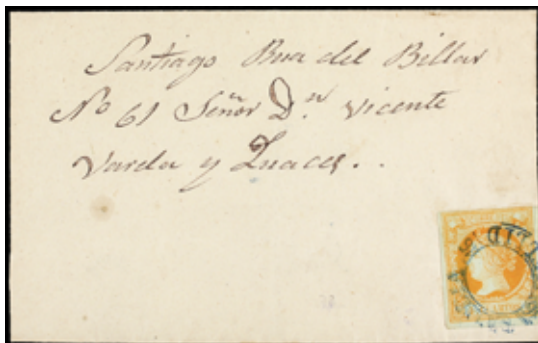 Santiago Rua del Billar
No 61 Señor Dn. Vicente
Varela y Luaces..